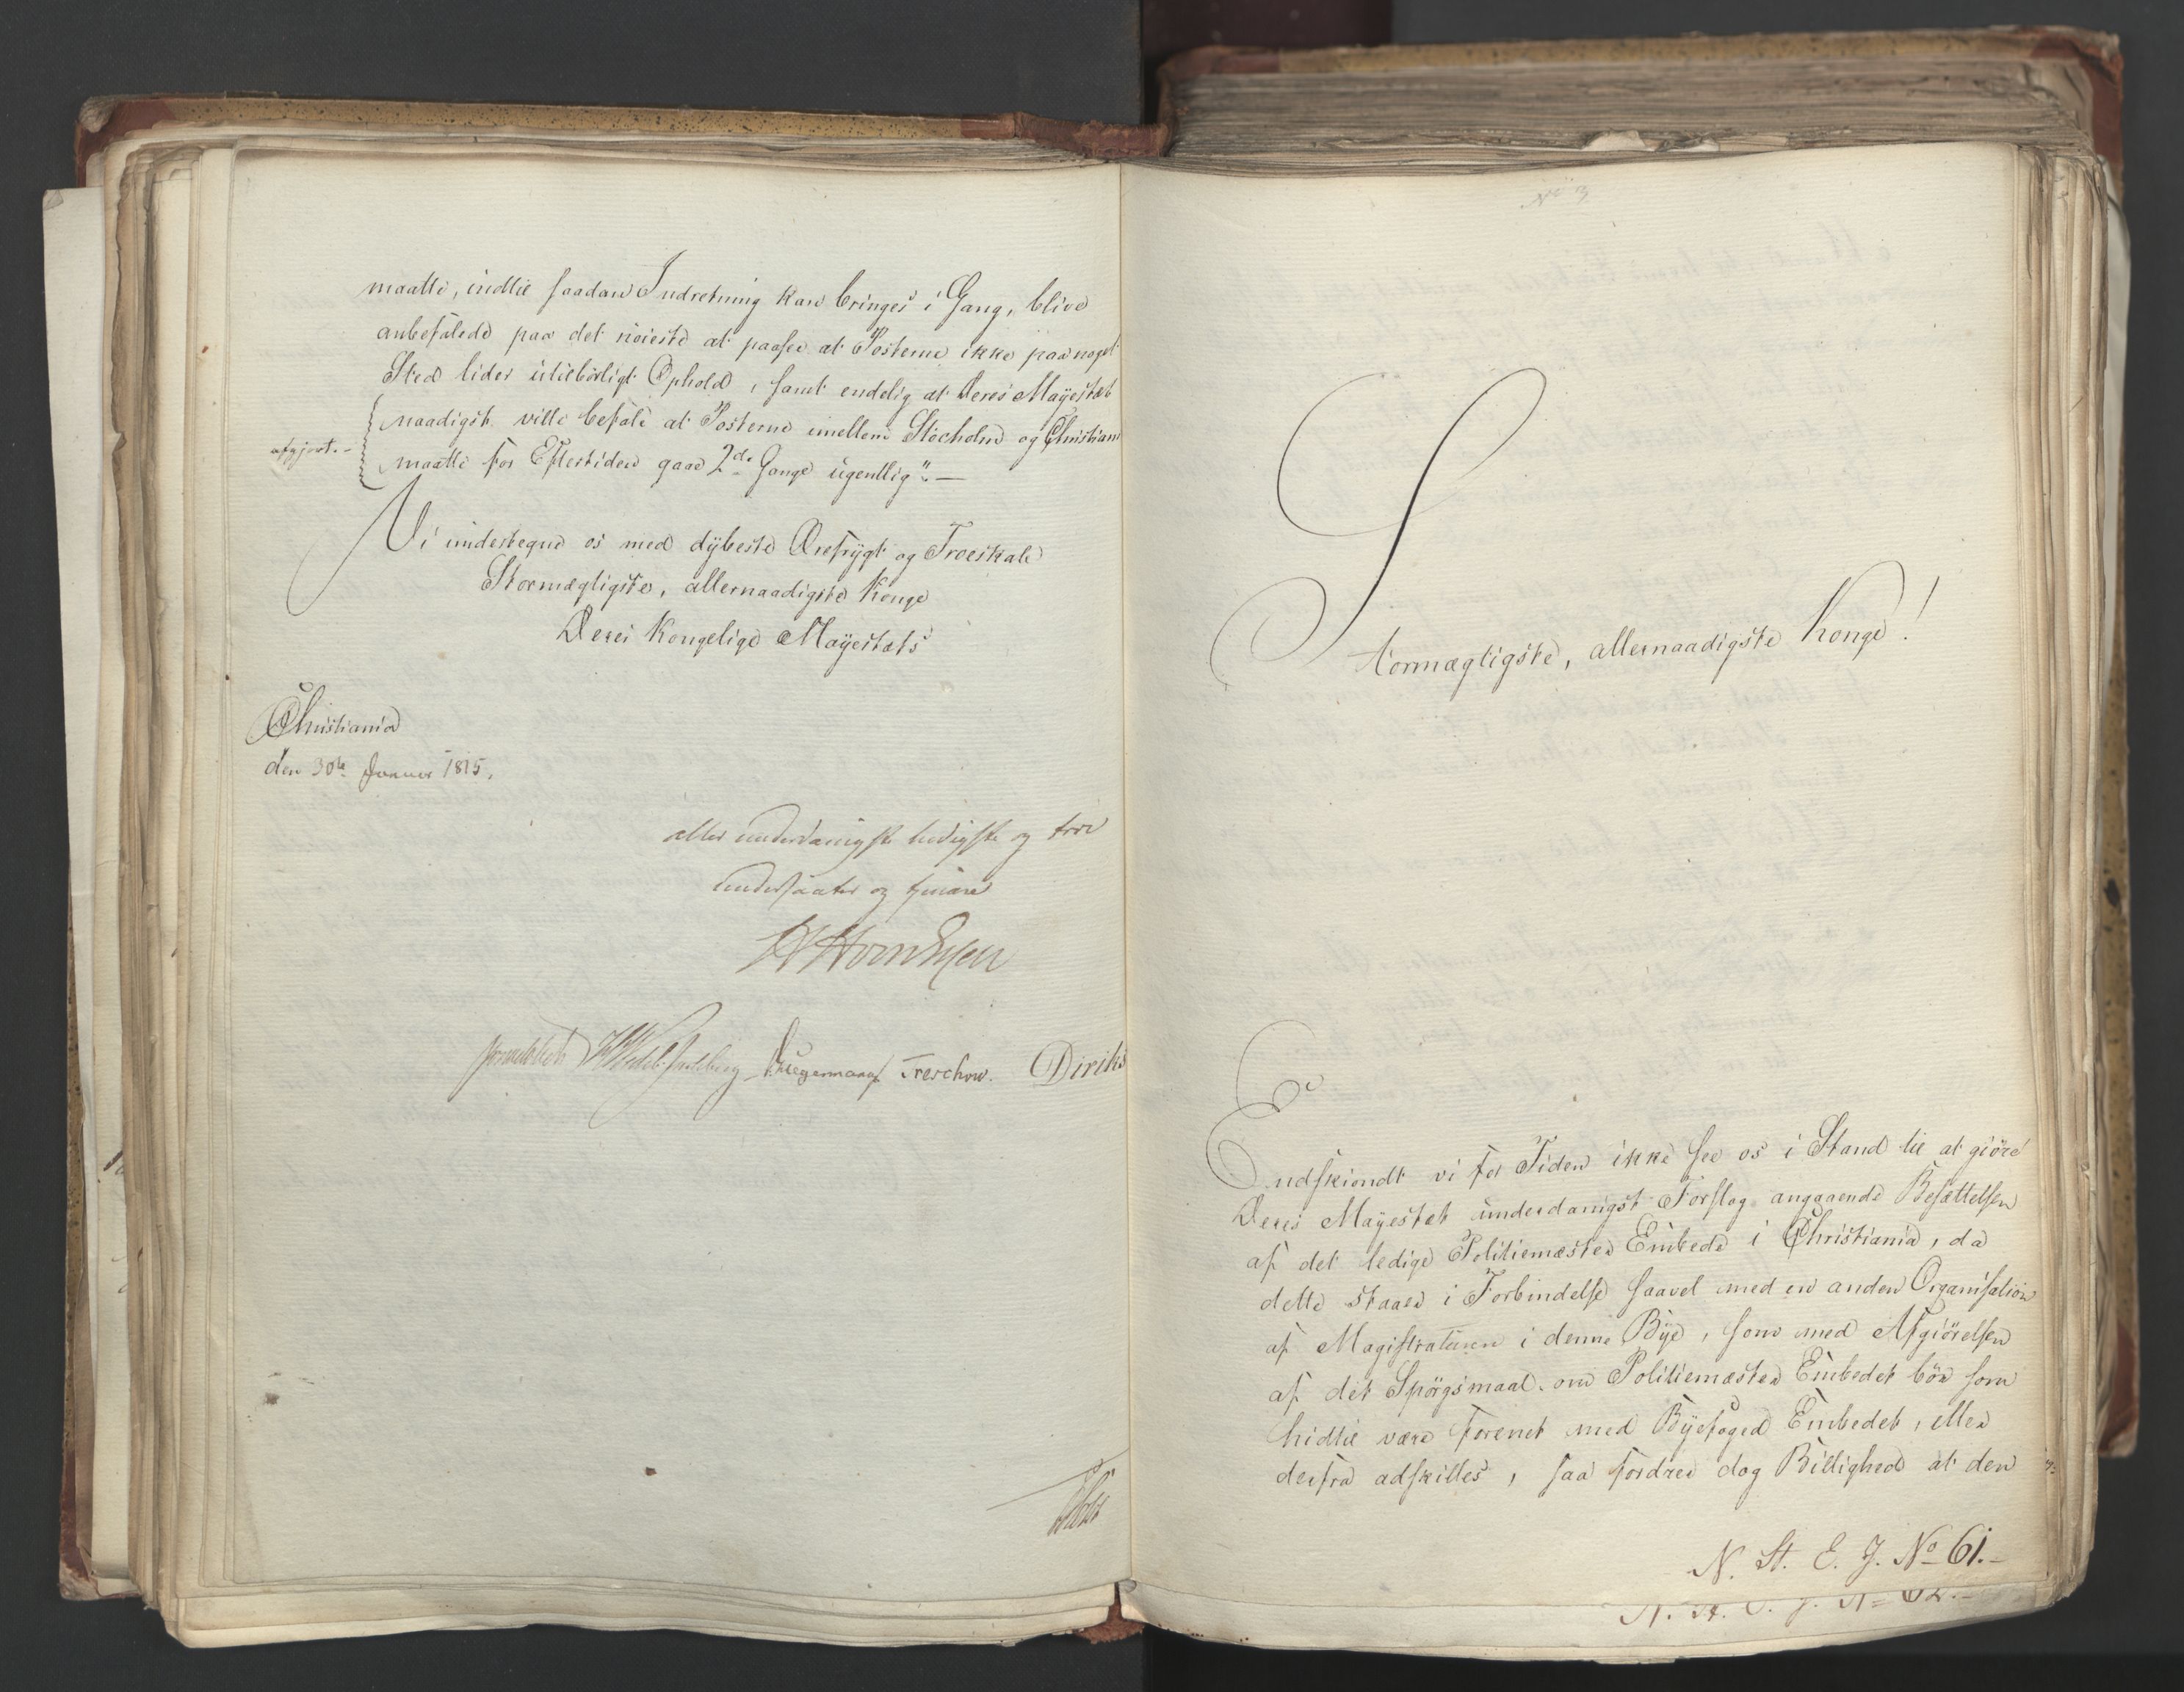 maatte, indtil saadan Indretning kan bringes i Gang, blive
anbefalede paa det nöieste at paasee at Posterne ikke paa noget
Sted lider utilbörligt Ophold, samt endelig at Deres Mayestæt
naadigst ville befale at Posterne imellem Stocholm og Christiania
afgjort.-
maatte for Eftertiden gaae 2de Gange ugentlig". —
Vi undertegne os med dÿbeste Ærefrÿgt og Troeskab
Stormægtigste, allernaadigste Konge
Deres Kongelige Mayestæts
Christiania
den 30te Januar 1815.
aller underdanigste lydigste og troe
undersaatter og tjenere
Sommerhielm HWedel Jarlsberg Krieger Treschow. Diriks
Holst
No 3
Stormægtigste, allernaadigste Konge!
Endskiöndt vi for Tiden ikke see os i Stand til at giöre
Deres Mayestæt underdanigst Forslag angaaende Besættelsen
af det ledige Politiemester Embede i Christiania, da
dette staaer i Forbindelse saavel med en anden Organisation
af Magistraturen i denne Bÿe, som med Afgiörelsen
af det Spörgsmaal om Politiemester Embedet bör som
hidtil være forenet med Bÿefoged Embedet, eller
derfra adskilles, saa fordrer dog Billighed at den
N. St. E. J. No 61.-
N. St. E. J. No 62.-